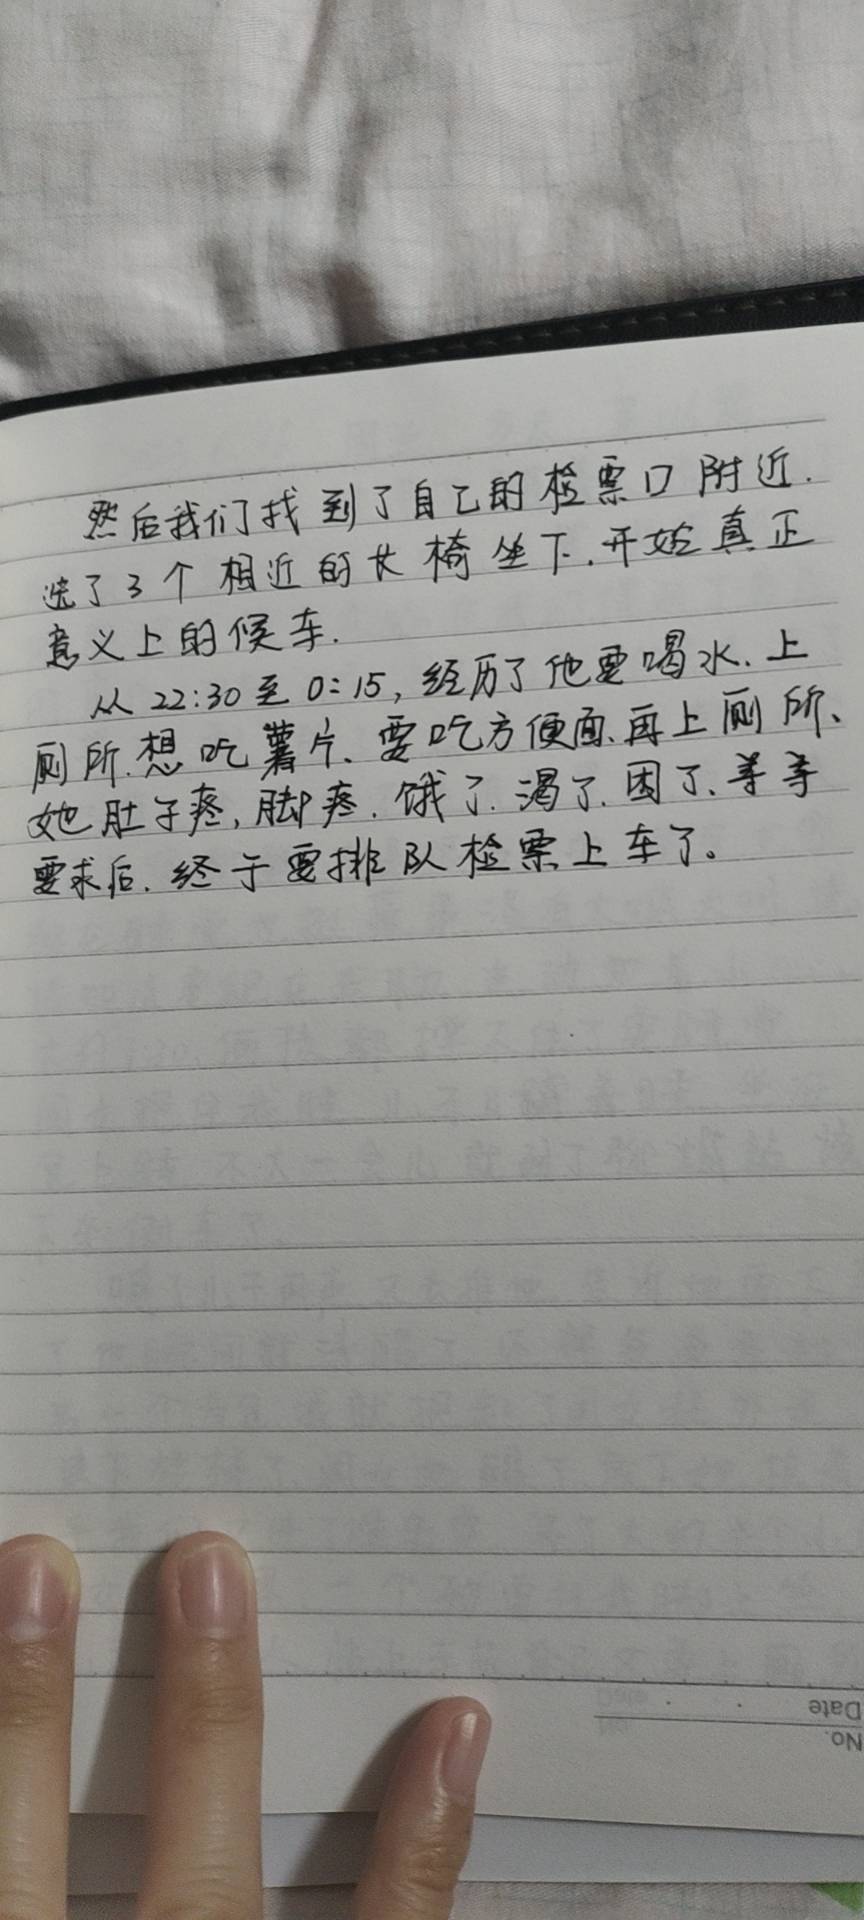 然后我们找到了自己的检票口附近.
选了3个相近的长椅坐下.开始真正
意义上的候车.
从22:30至0:15,经历了他要喝水、上
厕所.想吃薯片、要吃方便面、再上厕所、
她肚子疼,脚疼.饿了.渴了.困了、等等
要求后.终于要排队检票上车了。
Date
No.